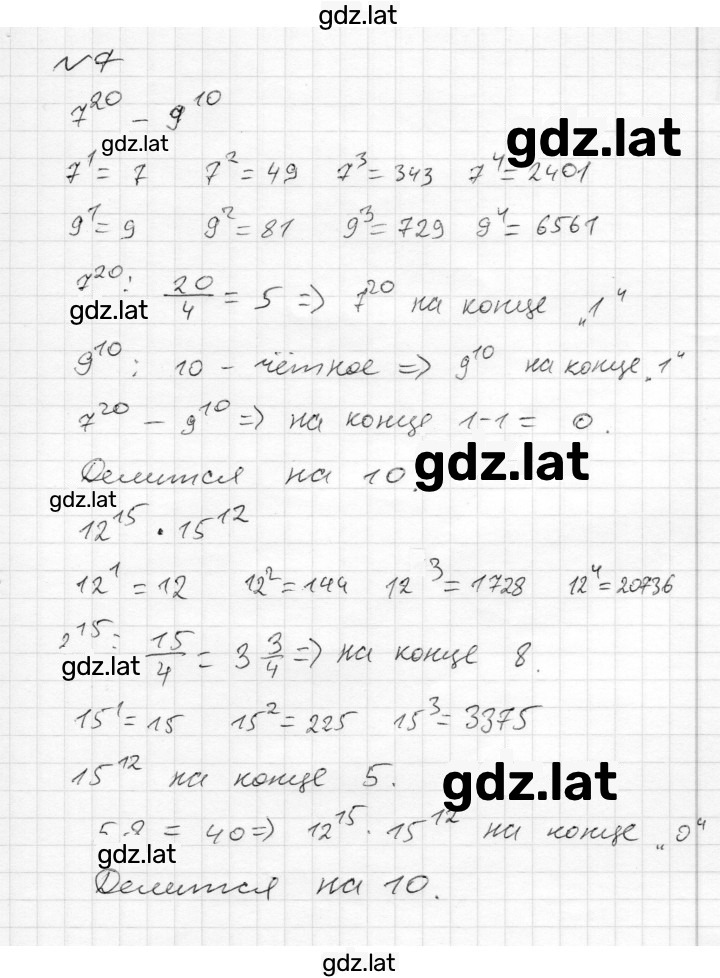 gdz.lat
№7
7²⁰ – 9¹⁰
gdz.lat
gdz.lat
7¹ = 7 7² = 49 7³ = 343 7⁴ = 2401
9¹ = 9 9² = 81 9³ = 729 9⁴ = 6561
7²⁰: 20/4 = 5 => 7²⁰ на конце „1“
gdz.lat
9¹⁰: 10 – чётное => 9¹⁰ на конце „1“
7²⁰ – 9¹⁰ => на конце 1-1 = 0.
Делится на 10.
gdz.lat
gdz.lat
12¹⁵ · 15¹²
12¹ = 12 12² = 144 12³ = 1728 12⁴ = 20736
2¹⁵: 15/4 = 3 3/4 => на конце 8.
gdz.lat
15¹ = 15 15² = 225 15³ = 3375
15¹² на конце 5.
gdz.lat
5·8 = 40 => 12¹⁵ · 15¹² на конце „0“
gdz.lat
Делится на 10.
gdz.lat